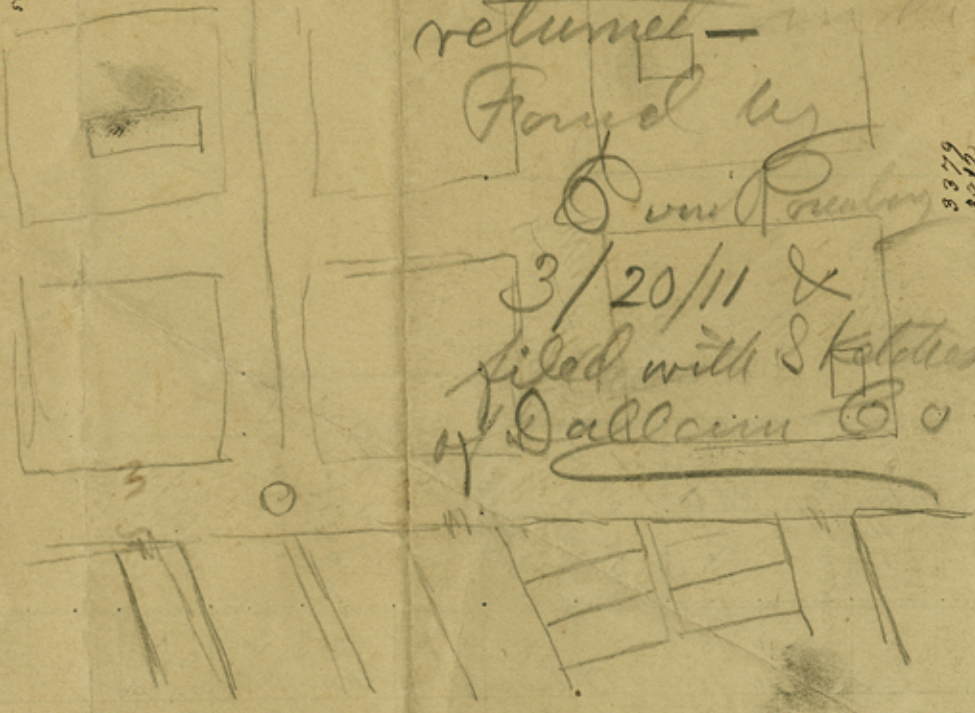 returned —
Found by
3/20/11 &
filed with Sketches
of Dallam Co
3379
3